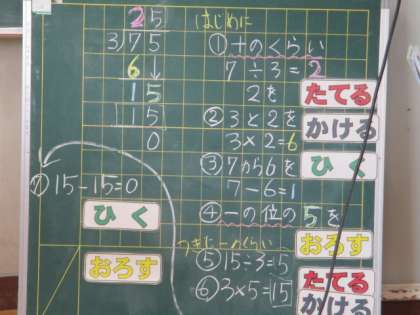 25
3)75
6↓
15
15
0
⑦15-15=0
ひく
おろす
はじめに
①十のくらい
7÷3=2
2を たてる
②3と2を かける
3×2=6
③7から6を ひく
7-6=1
④一の位の5を おろす
つぎに一のくらい
⑤15÷3=5 たてる
⑥3×5=15 かける